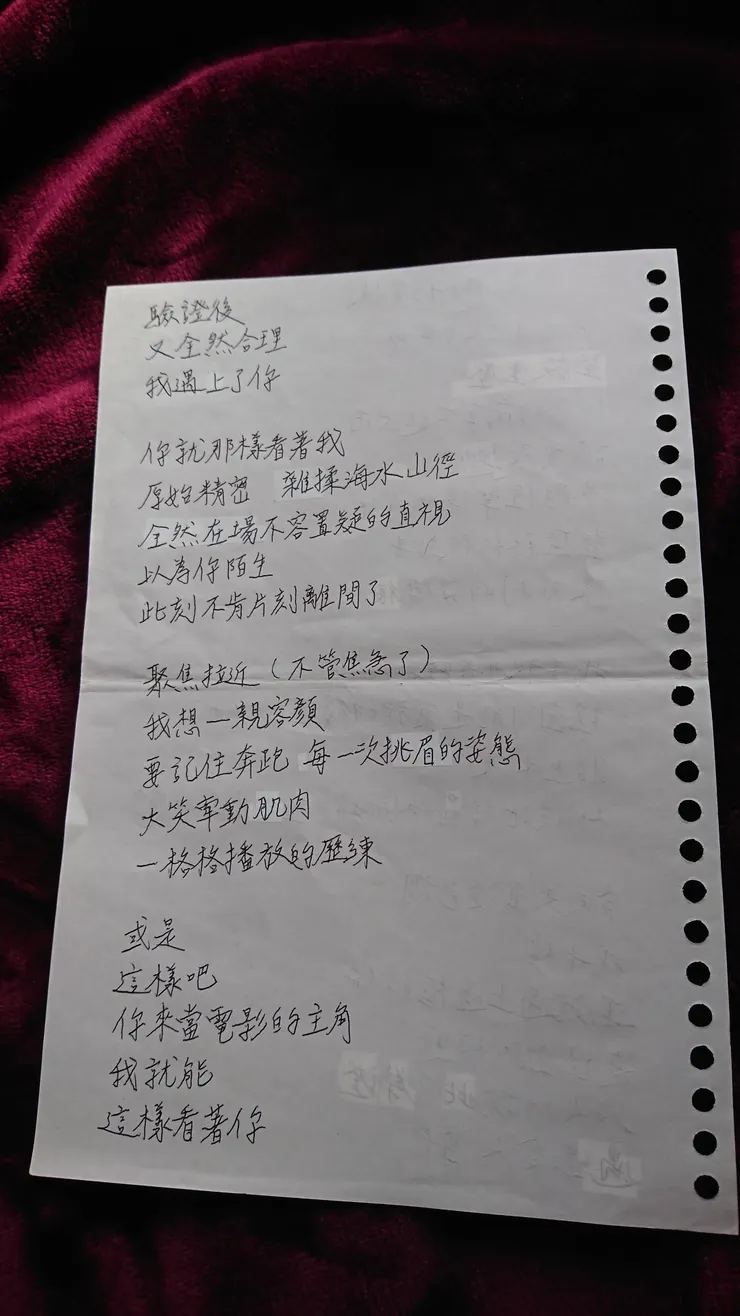 驗證後
又全然合理
我遇上了你
你就那樣看著我
原始精密 雜揉海水山徑
全然在場不容置疑的直視
以為你陌生
此刻不肯片刻離間了
聚焦拉近(不管焦急了)
我想一親容顏
要記住奔跑 每一次挑眉的姿態
大笑牽動肌肉
一格格播放的歷練
或是
這樣吧
你來當電影的主角
我就能
這樣看著你